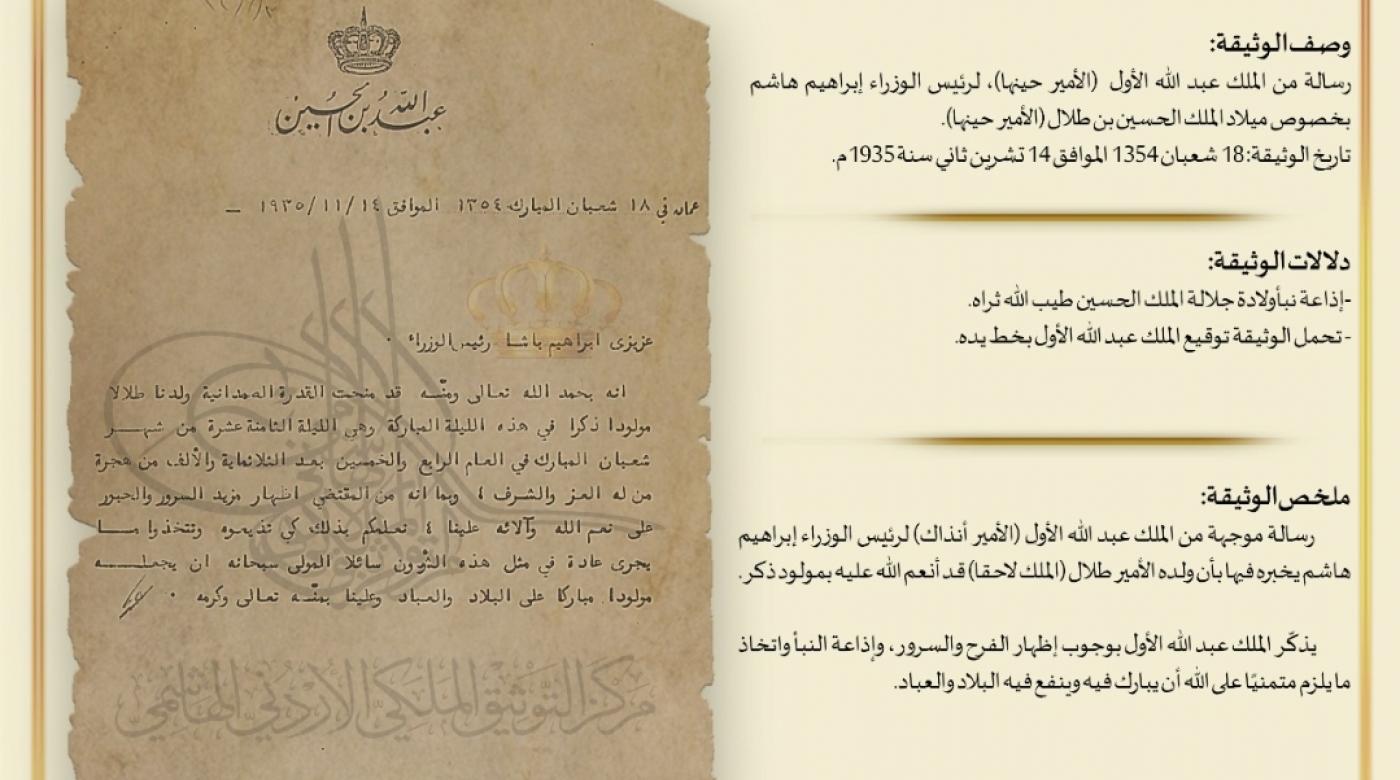 وصف الوثيقة:
رسالة من الملك عبد الله الأول (الأمير حينها)، لرئيس الوزراء إبراهيم هاشم
بخصوص ميلاد الملك الحسين بن طلال (الأمير حينها).
تاريخ الوثيقة: 18 شعبان 1354 الموافق 14 تشرين ثاني سنة 1935 م.
دلالات الوثيقة:
-إذاعة نبأ ولادة جلالة الملك الحسين طيب الله ثراه.
- تحمل الوثيقة توقيع الملك عبد الله الأول بخط يده.
ملخص الوثيقة:
رسالة موجهة من الملك عبد الله الأول (الأمير أنذاك) لرئيس الوزراء إبراهيم
هاشم يخبره فيها بأن ولده الأمير طلال (الملك لاحقا) قد أنعم الله عليه بمولود ذكر.
يذكّر الملك عبد الله الأول بوجوب إظهار الفرح والسرور، وإذاعة النبأ واتخاذ
ما يلزم متمنيًا على الله أن يبارك فيه وينفع فيه البلاد والعباد.
عبد الله بن الحسين
عمان في ١٨ شعبان المبارك ١٣٥٤ الموافق ١٤/١١/١٩٣٥ –
عزيزى ابراهيم باشا رئيس الوزراء ٠
انه بحمد الله تعالى ومنّه قد منحت القدرة الصمدانية ولدنا طلالا
مولودا ذكرا في هذه الليلة المباركة وهي الليلة الثامنة عشرة من شهر
شعبان المبارك في العام الرابع والخمسين بعد الثلاثماية والألف من هجرة
من له العز والشرف ٤ وبما انه من المقتضي اظهار مزيد السرور والحبور
على نعم الله وآلائه علينا ٤ نعلمكم بذلك كي تذيعوه وتتخذوا ما
يجرى عادة في مثل هذه الشؤون سائلا المولى سبحانه ان يجعله
مولودا مباركا على البلاد والعباد وعلينا بمنّه تعالى وكرمه ٠
مركز التوثيق الملكي الأردني الهاشمي